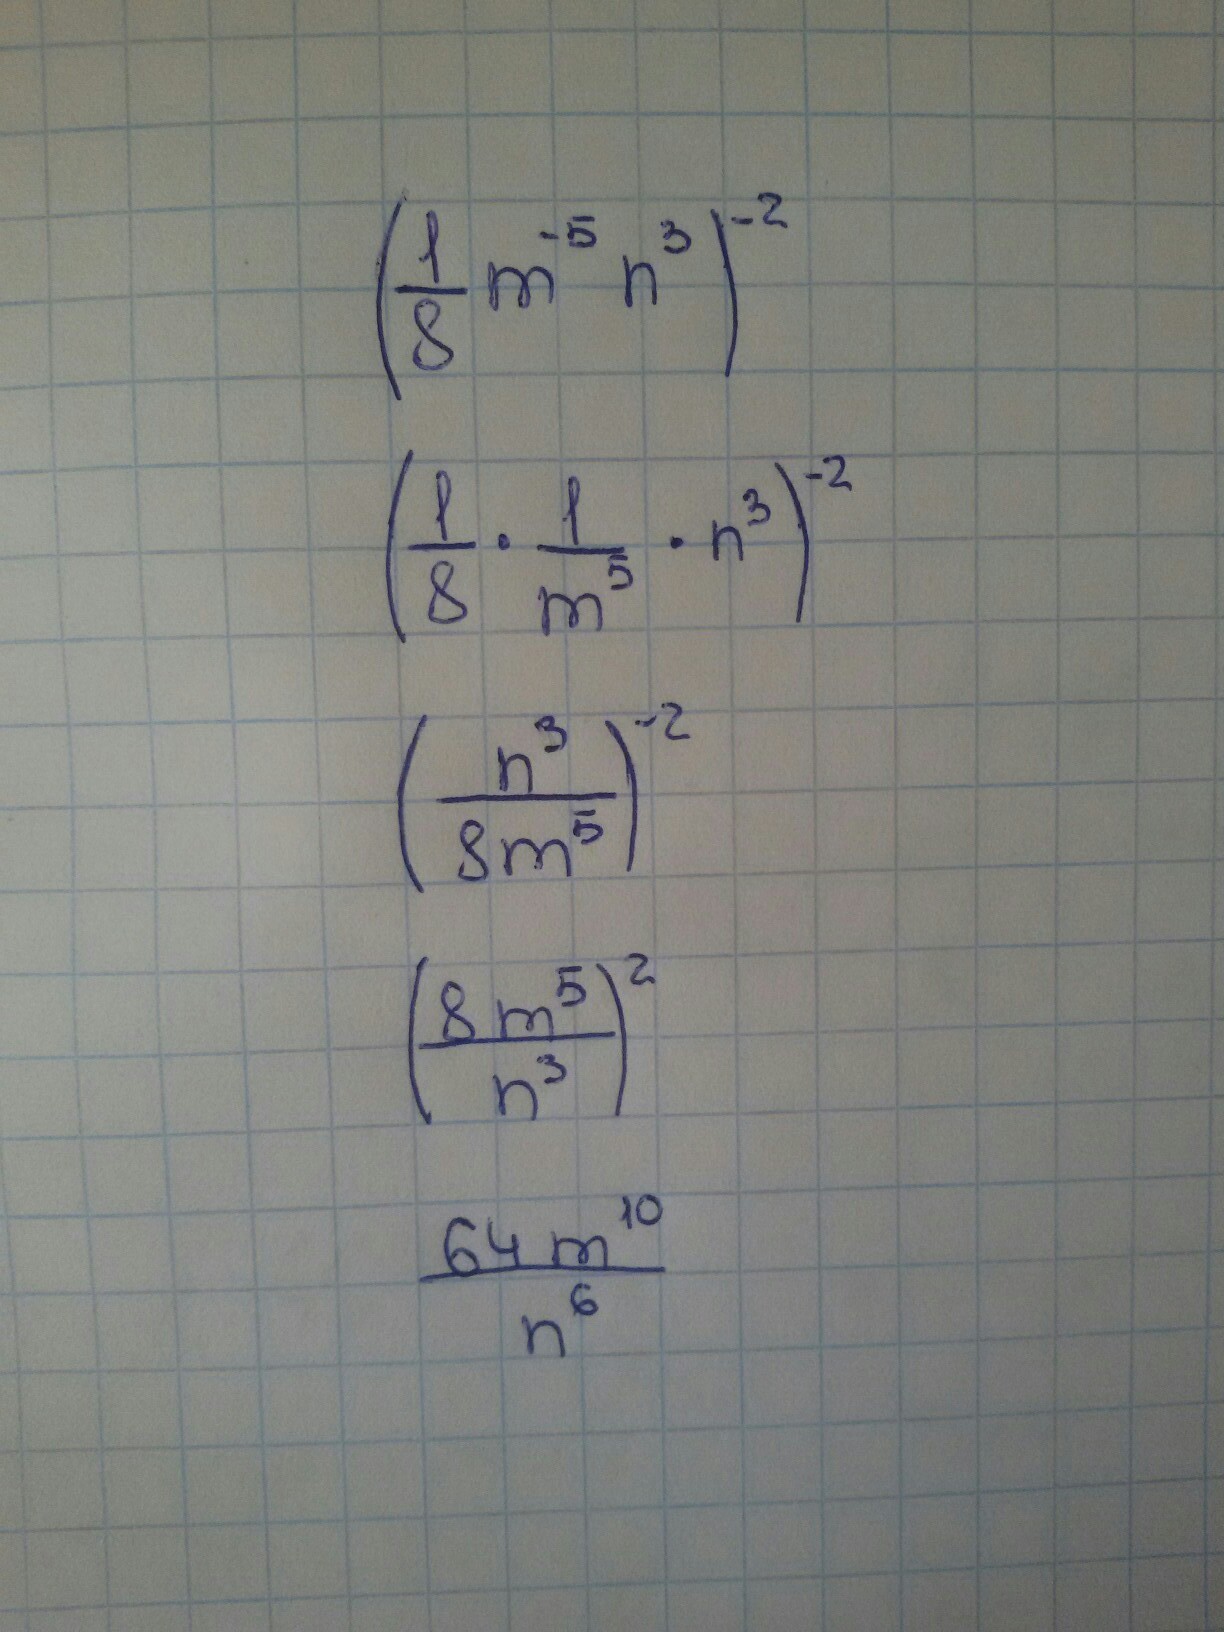 (1/8 m^-5 n^3)^-2
(1/8 · 1/m^5 · n^3)^-2
(n^3/8m^5)^-2
(8m^5/n^3)^2
64m^10/n^6